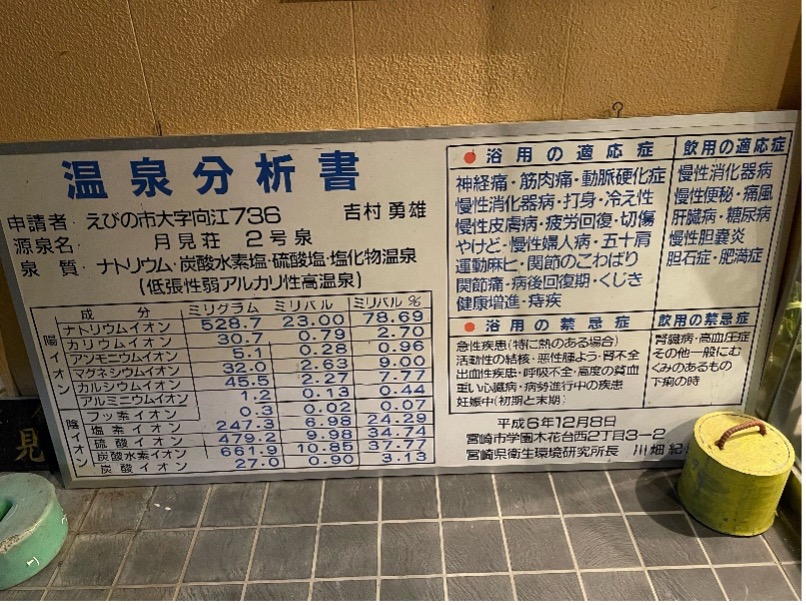 温泉分析書
申請者 えびの市大字向江736 吉村 勇雄
源泉名 月見荘 2号泉
泉質 ナトリウム・炭酸水素塩・硫酸塩・塩化物温泉
(低張性弱アルカリ性高温泉)
成分 ミリグラム ミリバル ミリバル%
陽イオン
ナトリウムイオン 528.7 23.00 78.69
カリウムイオン 30.7 0.79 2.70
アンモニウムイオン 5.1 0.28 0.96
マグネシウムイオン 32.0 2.63 9.00
カルシウムイオン 45.5 2.27 7.77
アルミニウムイオン 1.2 0.13 0.44
陰イオン
フッ素イオン 0.3 0.02 0.07
塩素イオン 247.3 6.98 24.29
硫酸イオン 479.2 9.98 34.74
炭酸水素イオン 661.9 10.85 37.77
炭酸イオン 27.0 0.90 3.13
浴用の適応症
神経痛・筋肉痛・動脈硬化症
慢性消化器病・打身・冷え性
慢性皮膚病・疲労回復・切傷
やけど・慢性婦人病・五十肩
運動麻ヒ・関節のこわばり
関節痛・病後回復期・くじき
健康増進・痔疾
飲用の適応症
慢性消化器病
慢性便秘・痛風
肝臓病・糖尿病
慢性胆嚢炎
胆石症・肥満症
浴用の禁忌症
急性疾患(特に熱のある場合)
活動性の結核・悪性腫よう・腎不全
出血性疾患・呼吸不全・高度の貧血
重い心臓病・病勢進行中の疾患
妊娠中(初期と末期)
飲用の禁忌症
腎臓病・高血圧症
その他一般にむ
くみのあるもの
下痢の時
平成6年12月8日
宮崎市学園木花台西2丁目3-2
宮崎県衛生環境研究所長 川畑 紀
見